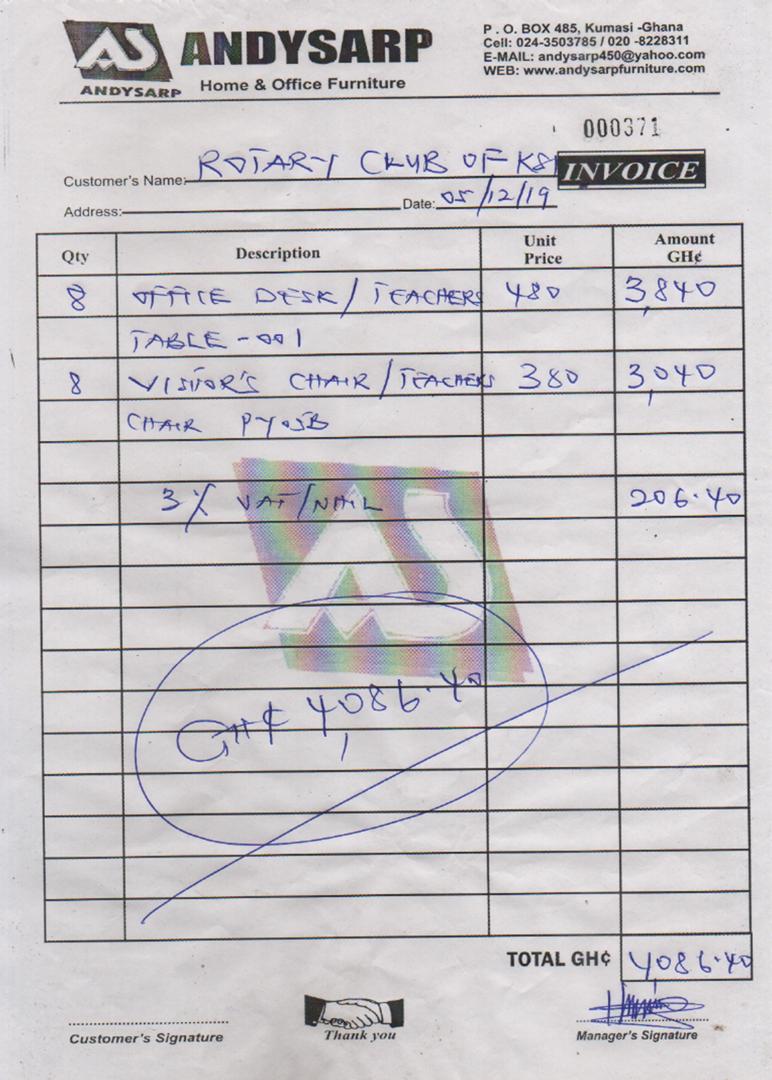 AS ANDYSARP
ANDYSARP
Home & Office Furniture
P . O. BOX 485, Kumasi -Ghana
Cell: 024-3503785 / 020 -8228311
E-MAIL: andysarp450@yahoo.com
WEB: www.andysarpfurniture.com
000371
Customer's Name: ROTARY CLUB OF KSI
INVOICE
Address: Date: 05/12/19
Qty Description Unit Price Amount GH¢
8 OFFICE DESK / TEACHERS 480 3,840
TABLE - 001
8 VISITOR'S CHAIR / TEACHERS 380 3,040
CHAIR PY05B
3% VAT/NHIL 206.40
AS
GH¢ 4,086.40
TOTAL GH¢ 4086.40
Customer's Signature
Thank you
Manager's Signature